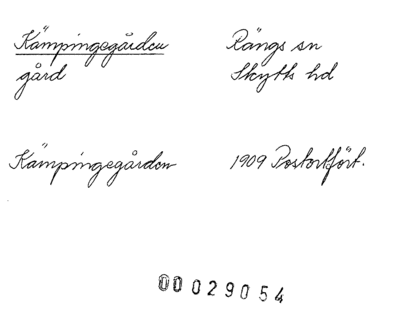 Kämpingegården
gård
Rängs sn
Skytts hd
Kämpingegården
1909 Postortfört.
00029054